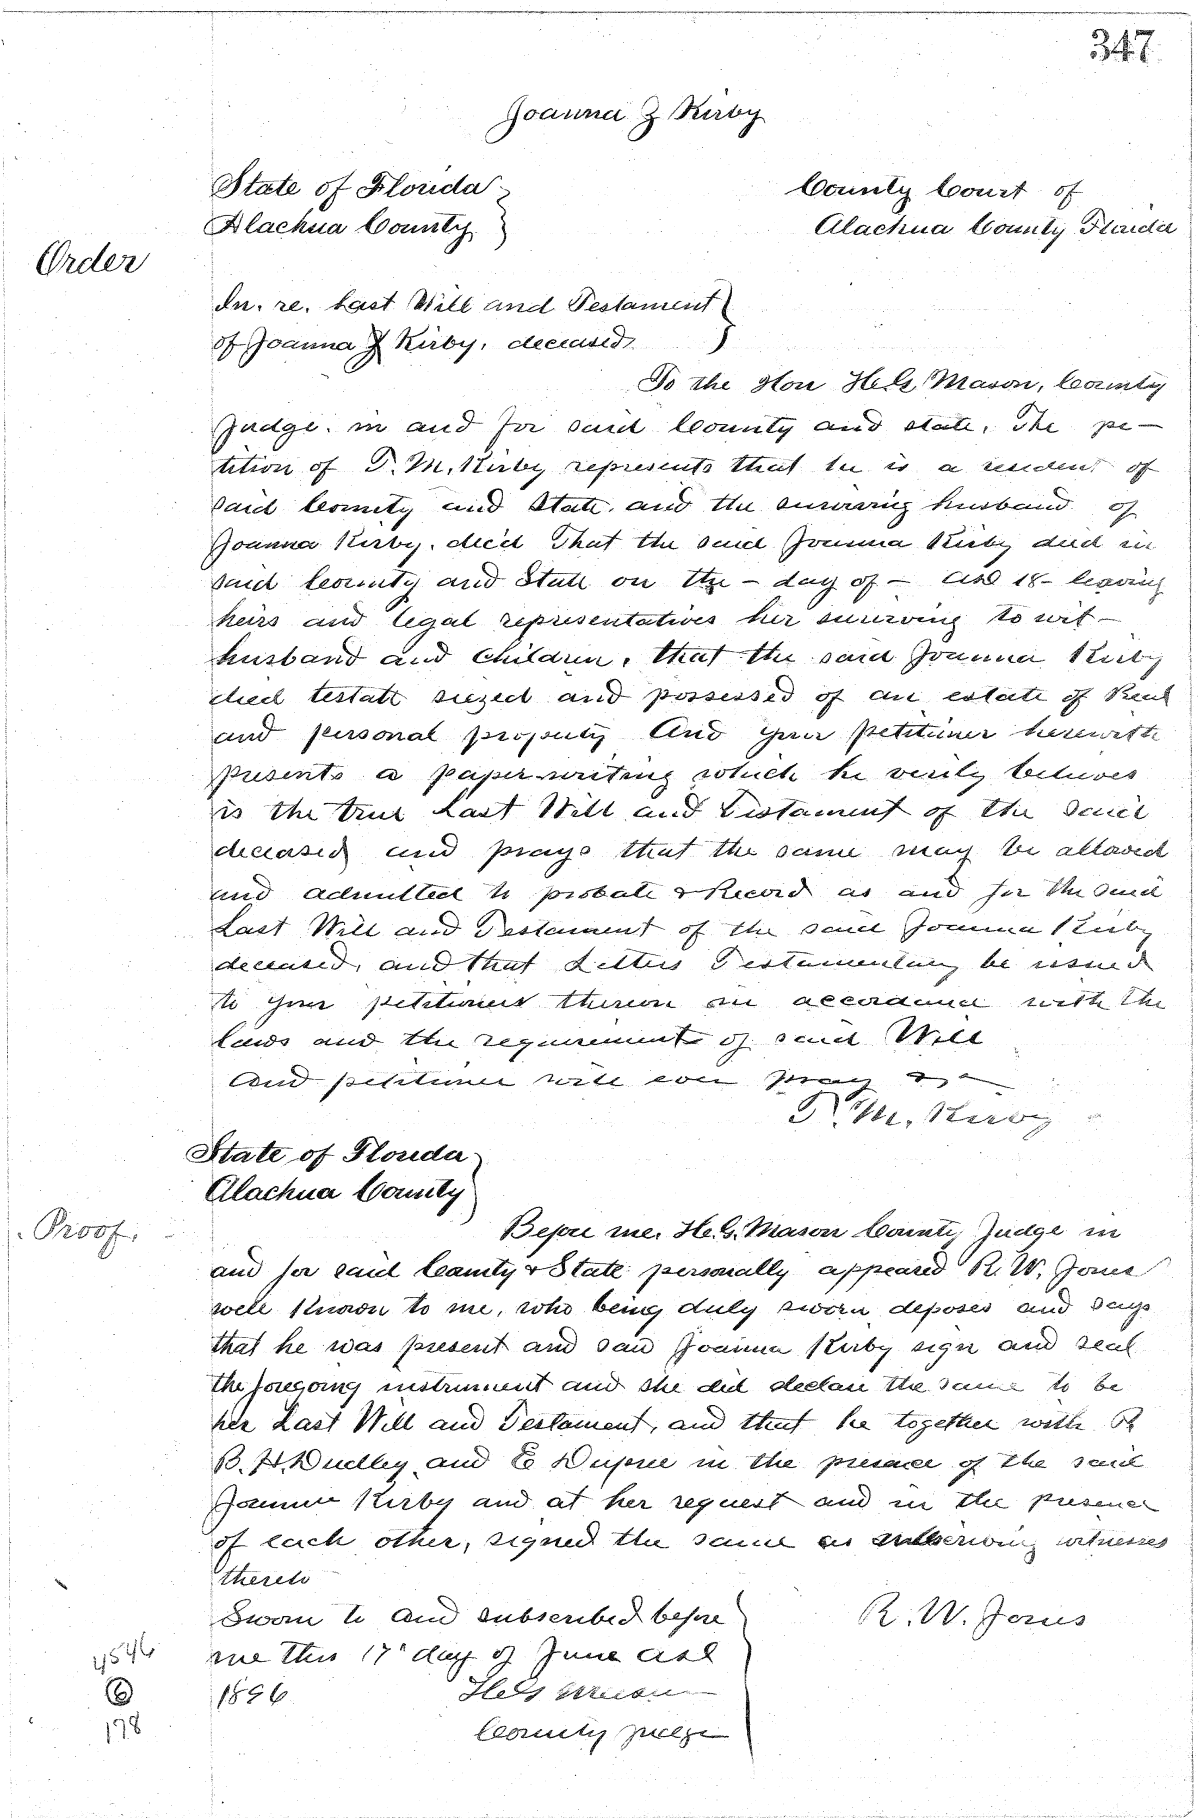 347
Joanna Z Kirby
State of Florida
Alachua County
County Court of
Alachua County Florida
Order
In. re. Last Will and Testament
of Joanna Z Kirby, deceased.
To the Hon H.G. Mason, County
Judge. in and for said County and state. The pe-
tition of T. M. Kirby represents that he is a resident of
said County and State, and the surviving husband of
Joanna Kirby, dec'd That the said Joanna Kirby died in
said County and State on the - day of - AD 18- leaving
heirs and legal representatives her surviving to wit -
husband and children, that the said Joanna Kirby
died testate siezed and possessed of an estate of Real
and personal property And your petitioner herewith
presents a paper writing which he verily believes
is the true Last Will and Testament of the said
deceased and prays that the same may be allowed
and admitted to probate & Record as and for the said
Last Will and Testament of the said Joanna Kirby
deceased, and that Letters Testamentary be issued
to your petitioner thereon in accordance with the
laws and the requirements of said Will
And petitioner will ever pray &c
T. M. Kirby
State of Florida
Alachua County
Proof.
Before me. H.G. Mason County Judge in
and for said County & State personally appeared R. W. Jones
well known to me, who being duly sworn deposes and says
that he was present and saw Joanna Kirby sign and seal
the foregoing instrument and she did declare the same to be
her Last Will and Testament, and that he together with R
B. H. Dudley and E Dupree in the presence of the said
Joanna Kirby and at her request and in the presence
of each other, signed the same as subscribing witnesses
thereto
Sworn to and subscribed before
me this 17" day of June AD
1896
H G Mason
County Judge
R. W. Jones
4546
6
178